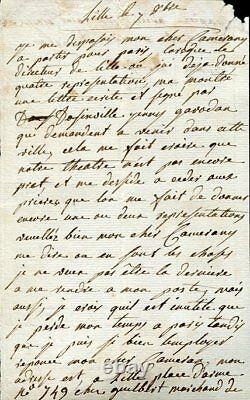 Lille le 7 8bre
je me disposois mon cher Camerany
a partir pour paris, lorsque le
directeur de Lille ou j'ai deja donné
quatre representation, ma montré
une lettre ecrite et signé par
Dosinville jenny gavodan
qui demandent a venir dans cette
ville, cela me fait croire que
notre theatre n'est pas encore
pret, et me decide a ceder aux
prieres que lon me fait de donner
encore une ou deux representations
veuillés bien mon cher Camerany
me dire ou en sont les choses
je ne veux pas etre la derniere
a me rendre a mon poste, mais
aussi, je crois quil est inutile que
je perde mon temps a pary tandis
que je puis si bien l'employer
reponce mon cher Camerany, mon
adresse est, a Lille place darme
no 749 ches guilbert marchand de
ebay